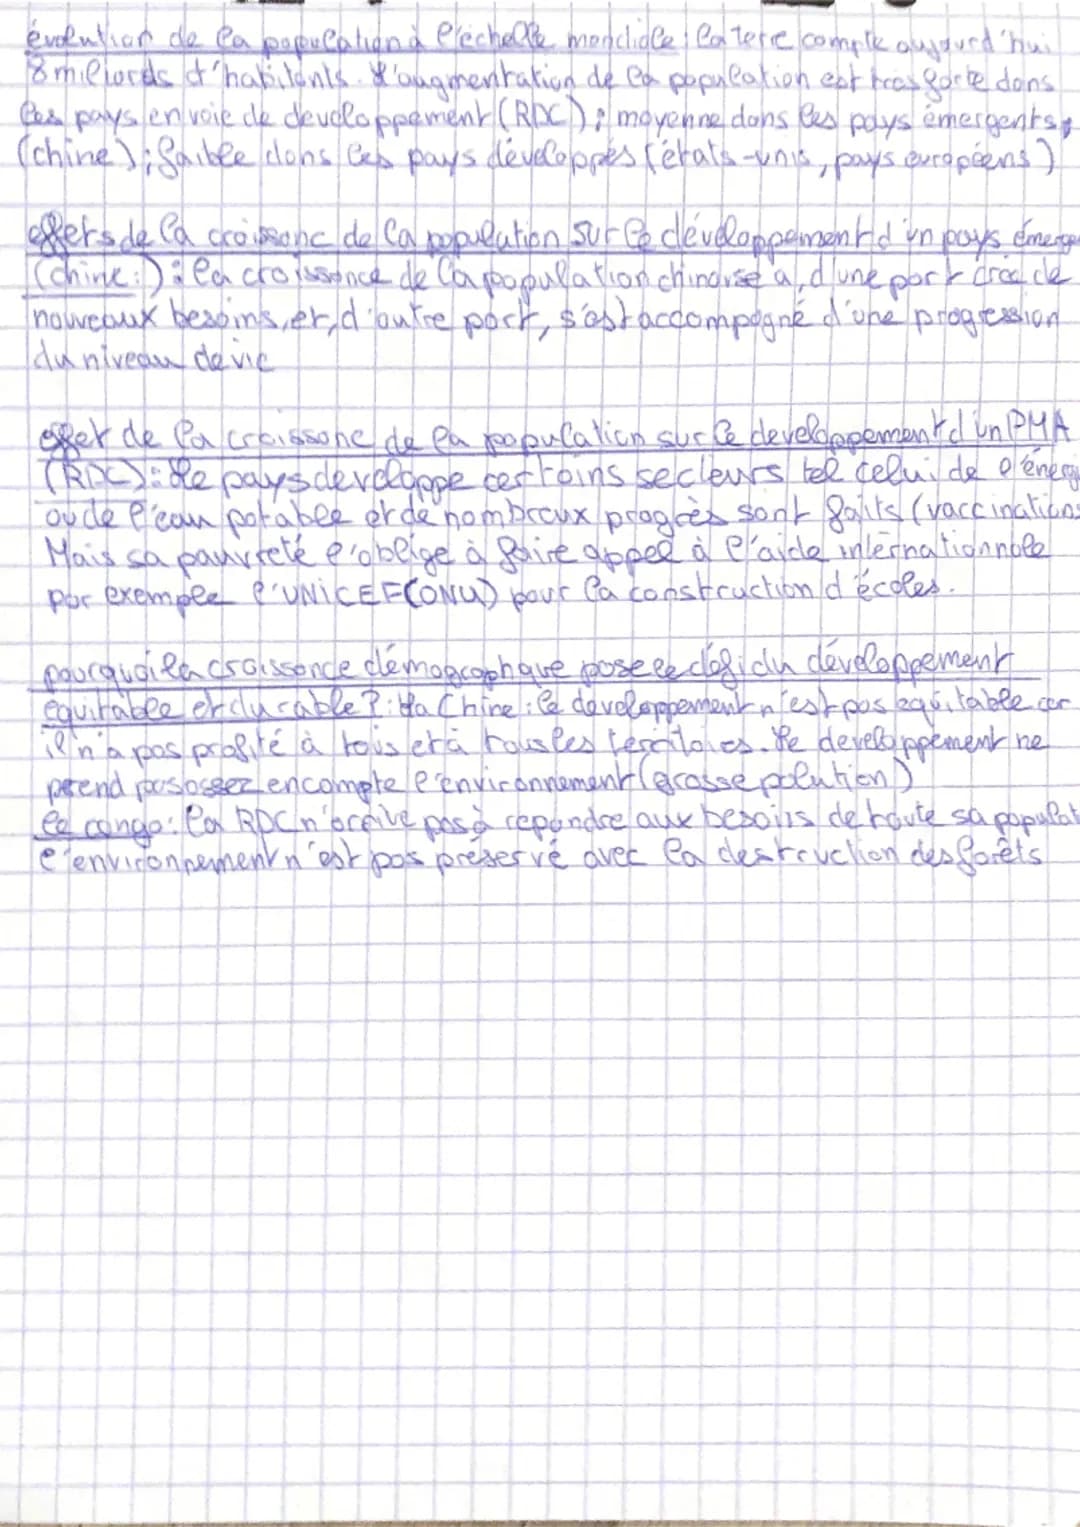 évolution de la population à l'échelle mondiale la terre compte aujourd'hui
8 miliards d'habitants. L'augmentation de la population est très forte dans
les pays en voie de developpement (RDC) ; moyenne dans les pays émergents,
(chine) ; faible dans les pays développés (états-unis, pays européens)
effets de la croissanc de la population sur le développement d'un pays émerge
(chine:) : la croissance de la population chinoise a, d'une part créé de
nouveaux besoins, et, d'autre part, s'est accompagné d'une progression
du niveau de vie
effet de la croissanc de la population sur le developpement d'un PMA
(RDC) : Le pays developpe certains secteurs tel celui de l'énergi
ou de l'eau potable et de nombreux progrès sont faits (vaccinations
Mais sa pauvreté l'oblige à faire appel à l'aide internationnale
par exemple l'UNICEF (ONU) pour la construction d'écoles.
pourquoi la croissance démographque pose le défi du développement
équitable et durable ? : La Chine : le developpement n'est pas équitable car
il n'a pas profité à tous et à tous les territoires. Le developpement ne
prend pas assez en compte l'environnement (grosse polution)
le congo : la RDC n'arrive pas à repondre aux besoins de toute sa populat
l'environnement n'est pas préservé avec la destruction des forêts